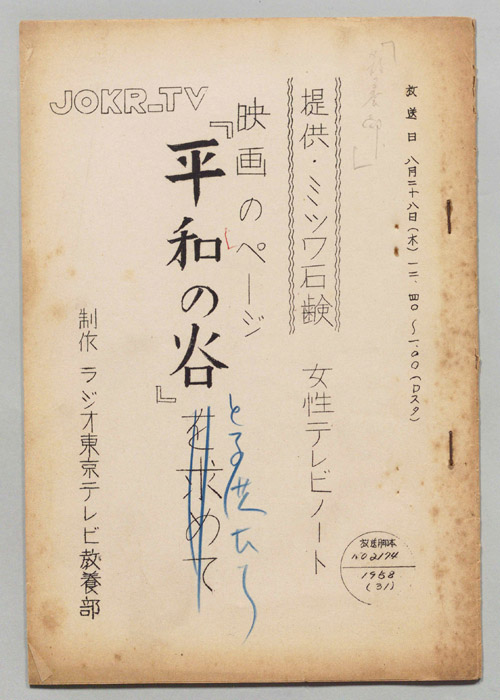 放送日 八月二十八日(木) 一二、四〇〜一、〇〇(Dスタ)
提供・ミツワ石鹸 女性テレビノート
映画のページ
『平和の谷』を求めて
と子供たち
制作 ラジオ東京テレビ教養部
JOKR-TV
放送脚本
NO 2174
1958
(31)